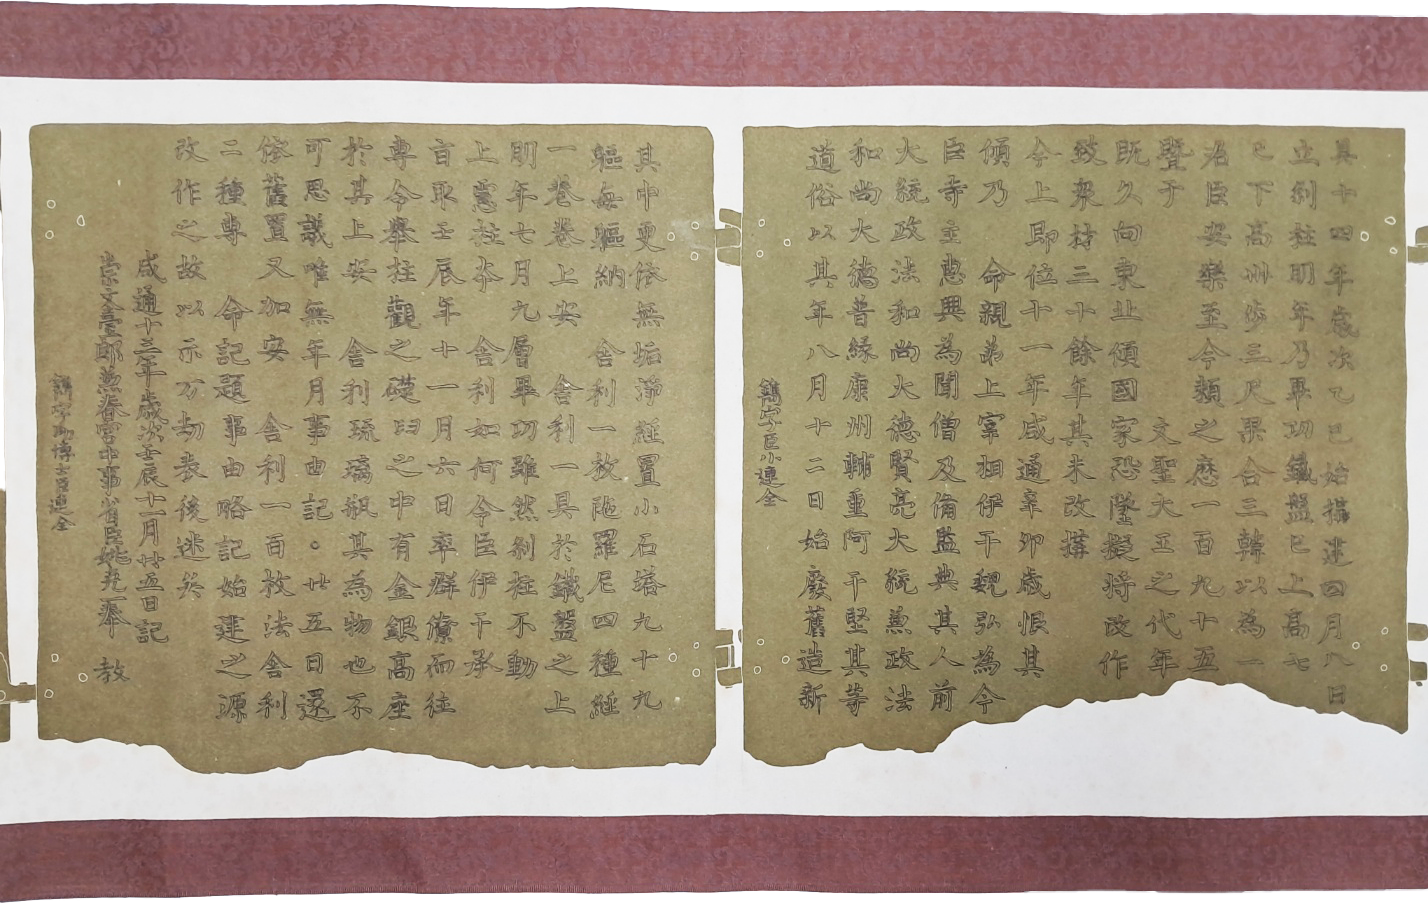 其十四年歲次乙巳始搆建四月八日
立刹柱明年乃畢功鐵盤已上高七
已下高卅步三尺果合三韓以為一
君臣安樂至今賴之歷一百九十五
曁于　文聖大王之代年
既久向東北傾國家恐墜擬將改作
致衆材三十餘年其未改搆
今上即位十一年咸通辛卯歲恨其
傾乃　命親弟上宰相伊干魏弘為令
臣寺主惠興為聞僧及脩監典其人前
大統政法和尚大德賢亮大統兼政法
和尚大德普緣康州輔重阿干堅其等
道俗以其年八月十二日始廢舊造新
鐫字臣小連全
其中更依無垢淨經置小石塔九十九
軀每軀納　舍利一枚陁羅尼四種經
一卷卷上安　舍利一具於鐵盤之上
明年七月九層畢功雖然刹柱不動
上慮柱本　舍利如何令臣伊干承
旨取壬辰年十一月六日率群僚而往
專令舉柱觀之礎臼之中有金銀高座
於其上安　舍利琉璃瓶其為物也不
可思議唯無年月事由記。廿五日還
依舊置又加安　舍利一百枚法舍利
二種專　命記題事由略記始建之源
改作之故以示万劫表後迷矣
咸通十三年歲次壬辰十一月廿五日記
崇文臺郎兼春宮中事省臣姚克一奉　教
鐫字助博士臣連全